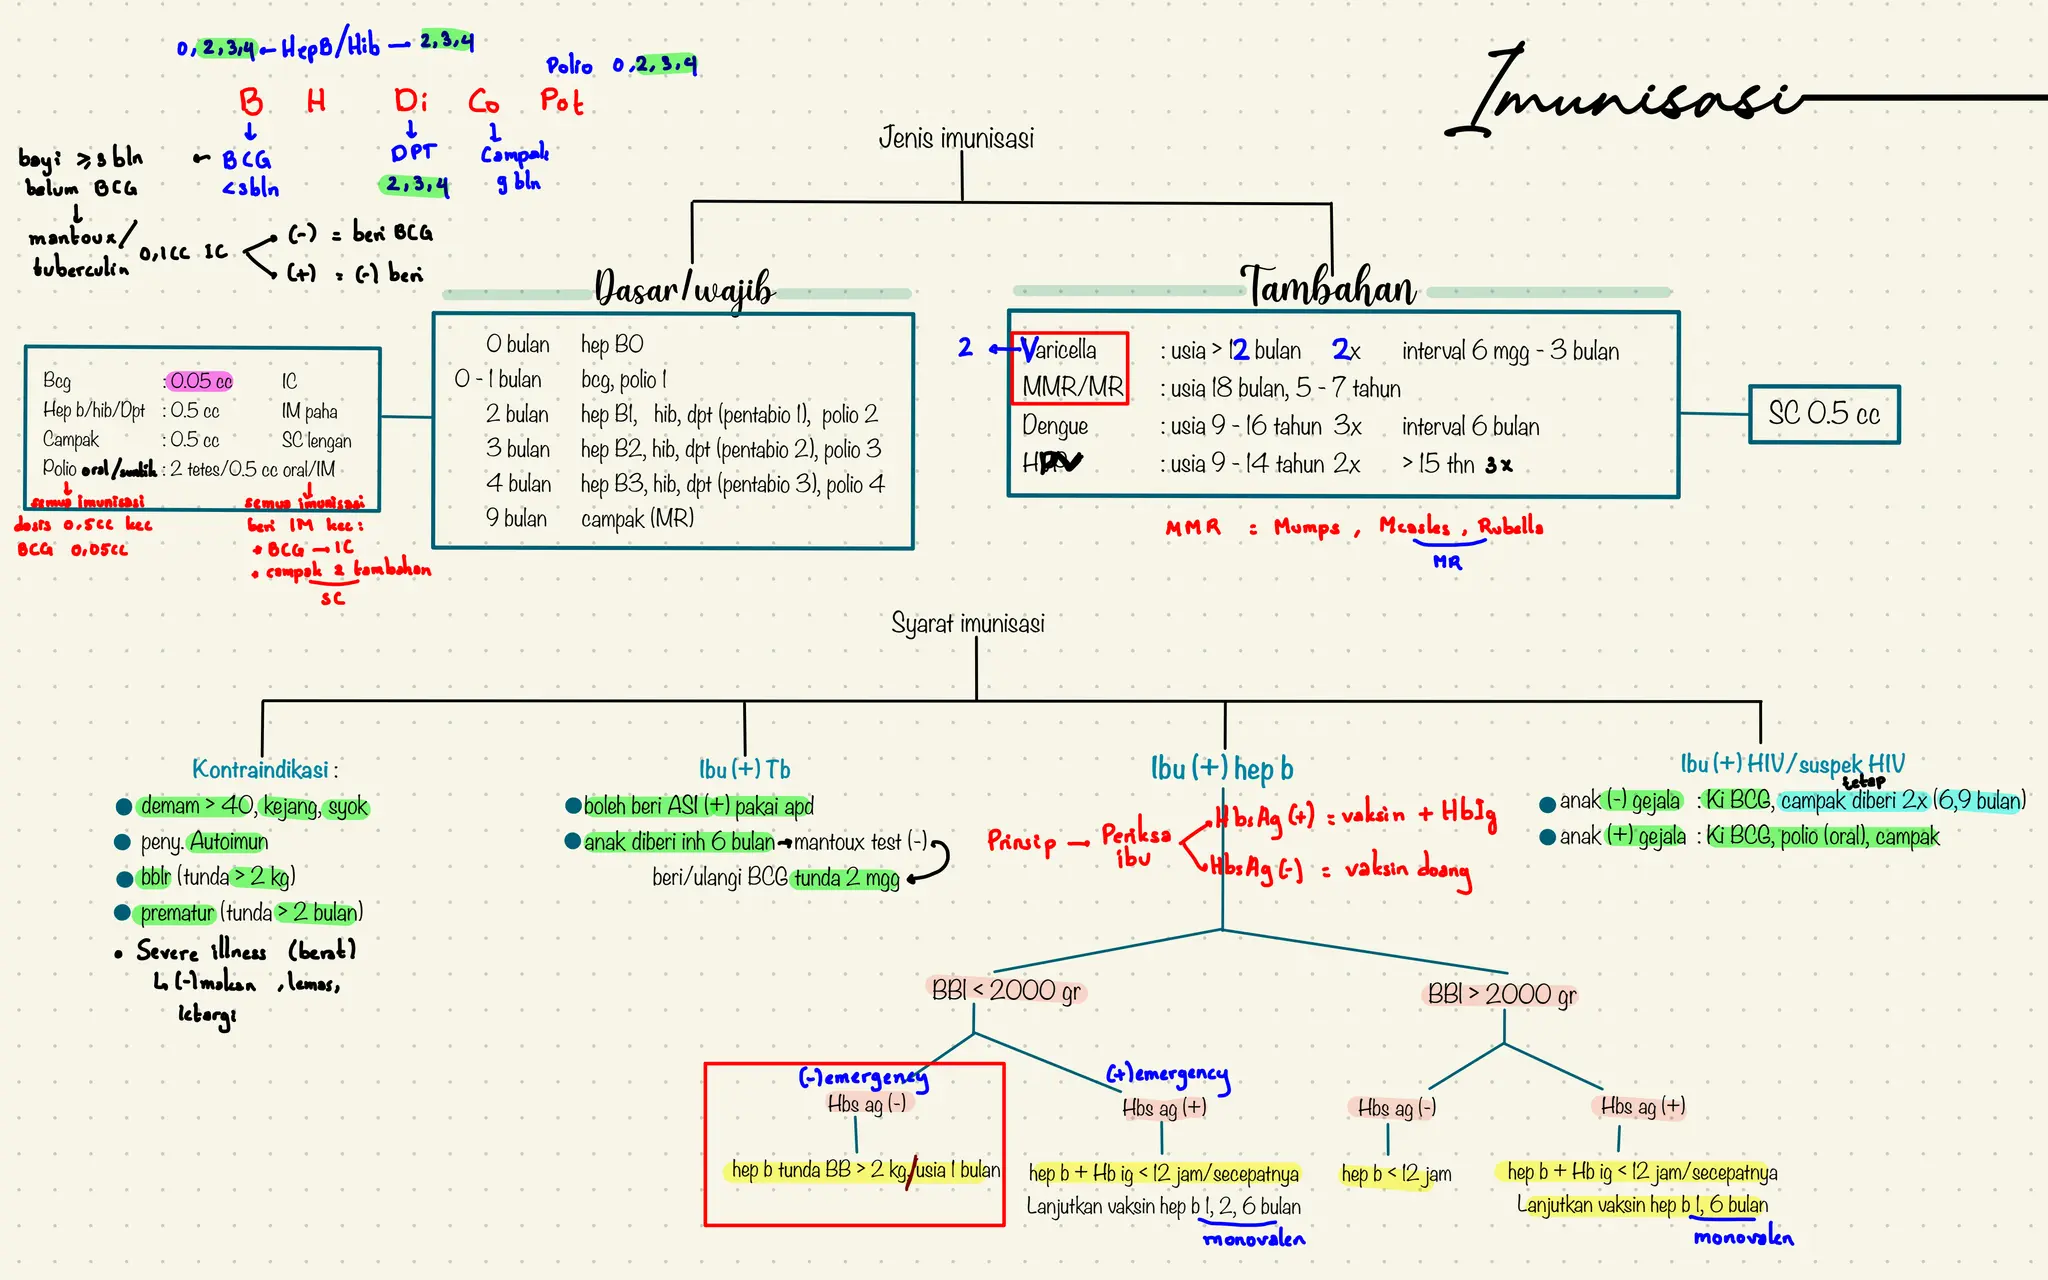 Imunisasi
0, 2,3,4 ← HepB/Hib → 2,3,4
Polio 0,2,3,4
B H Di Co Pot
bayi ≥3 bln
belum BCG
BCG
<3bln
DPT
2,3,4
Campak
9 bln
mantoux/
tuberculin
0,1cc IC
(-) = beri BCG
(+) = (-) beri
Jenis imunisasi
Dasar/wajib
Bcg : 0.05 cc IC
Hep b/hib/Dpt : 0.5 cc IM paha
Campak : 0.5 cc SC lengan
Polio oral/suntik : 2 tetes/0.5 cc oral/IM
semua imunisasi
dosis 0,5cc kec
BCG 0,05cc
semua imunisasi
beri IM kec:
• BCG → IC
• campak 2 tambahan
SC
0 bulan hep B0
0 - 1 bulan bcg, polio 1
2 bulan hep B1, hib, dpt (pentabio 1), polio 2
3 bulan hep B2, hib, dpt (pentabio 2), polio 3
4 bulan hep B3, hib, dpt (pentabio 3), polio 4
9 bulan campak (MR)
Tambahan
2 ← Varicella : usia > 12 bulan 2x interval 6 mgg - 3 bulan
MMR/MR : usia 18 bulan, 5 - 7 tahun
Dengue : usia 9 - 16 tahun 3x interval 6 bulan
HPV : usia 9 - 14 tahun 2x > 15 thn 3x
SC 0.5 cc
MMR = Mumps, Measles, Rubella
MR
Syarat imunisasi
Kontraindikasi :
demam > 40, kejang, syok
peny. Autoimun
bblr (tunda > 2 kg)
prematur (tunda > 2 bulan)
• Severe illness (berat)
↳ (-) makan, lemas,
letargi
Ibu (+) Tb
boleh beri ASI (+) pakai apd
anak diberi inh 6 bulan → mantoux test (-)
beri/ulangi BCG tunda 2 mgg
Ibu (+) hep b
Prinsip → Periksa
ibu
HbsAg (+) = vaksin + HbIg
HbsAg (-) = vaksin doang
Ibu (+) HIV/suspek HIV
tetap
anak (-) gejala : Ki BCG, campak diberi 2x (6,9 bulan)
anak (+) gejala : Ki BCG, polio (oral), campak
BBl < 2000 gr
BBl > 2000 gr
(-) emergency
Hbs ag (-)
hep b tunda BB > 2 kg/usia 1 bulan
(+) emergency
Hbs ag (+)
hep b + Hb ig < 12 jam/secepatnya
Lanjutkan vaksin hep b 1, 2, 6 bulan
monovalen
Hbs ag (-)
hep b < 12 jam
Hbs ag (+)
hep b + Hb ig < 12 jam/secepatnya
Lanjutkan vaksin hep b 1, 6 bulan
monovalen